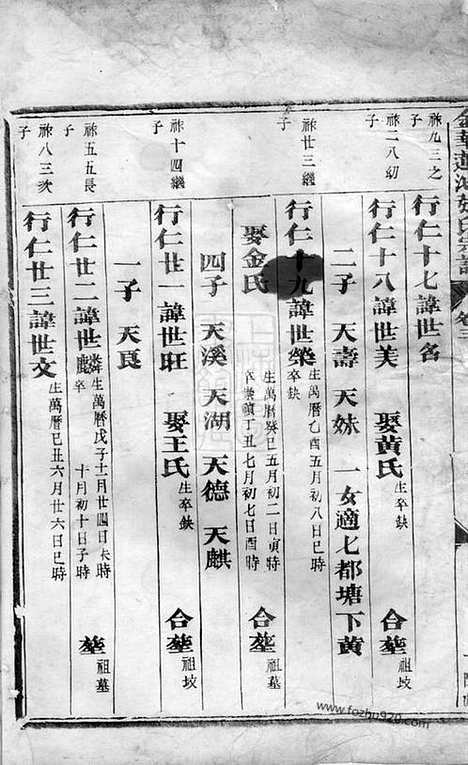 祢九三之
子
行仁十七諱世名
祢二八幼
子
行仁十八諱世美 娶黃氏 生卒缺 合塟 祖坟
二子 天壽 天妹 一女適七都塘下黃
祢廿三繼
子
行仁十九諱世榮 生萬曆乙酉五月初八日巳時 卒缺
娶金氏 生萬曆癸巳五月初二日寅時 卒崇禎丁丑七月初七日酉時 合塟 祖墓
四子 天溪 天湖 天德 天麒
祢十四繼
子
行仁廿一諱世旺 娶王氏 生卒缺 合塟 祖坟
一子 天良
祢五五長
子
行仁廿二諱世麟 生萬曆戊子十二月廿四日未時 十月初十日子時 塟 祖墓
祢八三次
子
行仁廿三諱世文 生萬曆己丑六月廿六日巳時
www.fozhu920.com